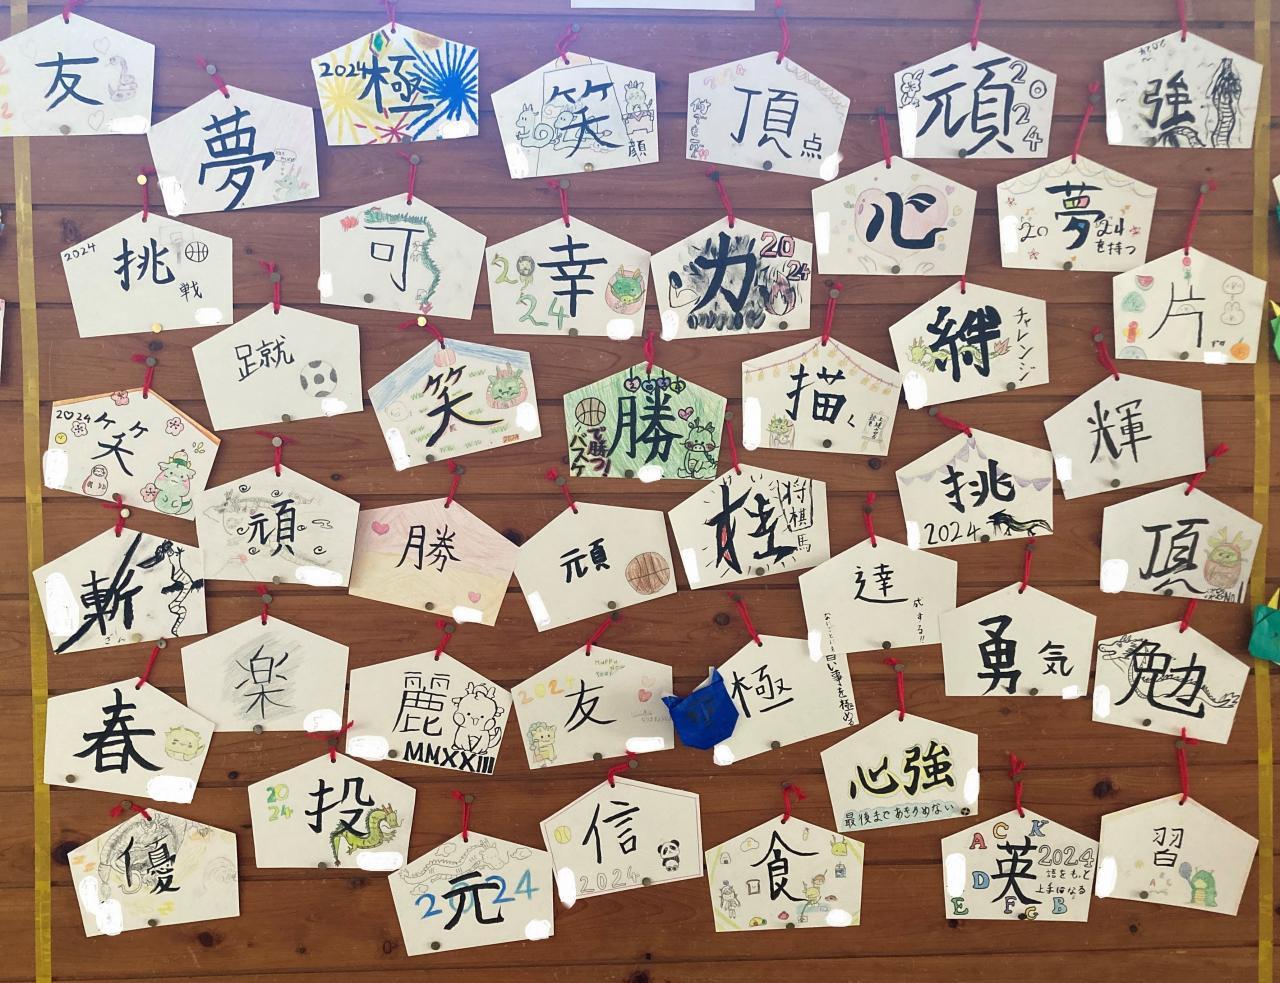 友
夢
2024 極
笑顔
頂点
頑 2024
強
挑戦 2024
可
幸 2024
力 2024
心
夢 2024 を持つ
片
足就
笑 2024
勝 バスケで勝つ!
描く
絆 チャレンジ
輝
2024 笑
頑
勝
頑
桂 将棋 馬
挑 2024
頂
斬 ざん
達成する!!
勇気
勉
春
楽
麗 MMXXIII
友 2024 HAPPY NEW YEAR
極
心強
最後まであきらめない
優
投 2024
元 2024
信 2024
食
英語をもっと上手になる 2024 A C K D E F G B
習